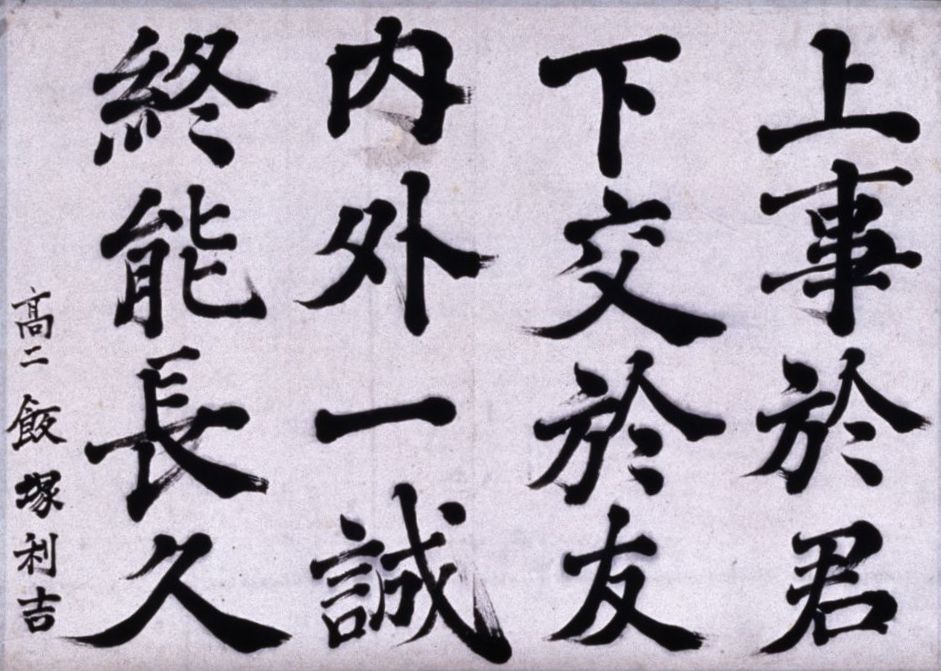 上事於君
下交於友
内外一誠
終能長久
高二 飯塚利吉